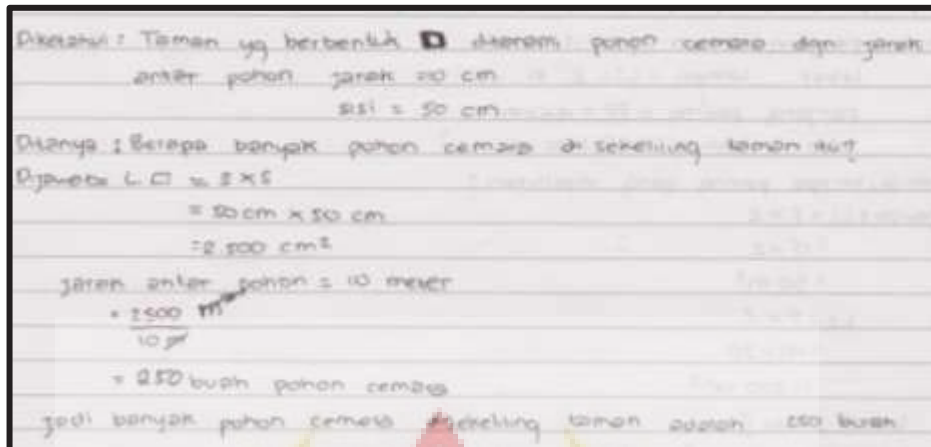 Diketahui : Taman yg berbentuk □ ditanami pohon cemara dgn jarak
antar pohon jarak 10 cm
sisi = 50 cm
Ditanya : Berapa banyak pohon cemara di sekeliling taman itu?
Dijawab : L □ = S × S
= 50 cm × 50 cm
= 2.500 cm²
jarak antar pohon = 10 meter
= 2500 m
10 m
= 250 buah pohon cemara
jadi banyak pohon cemara disekeliling taman adalah 250 buah